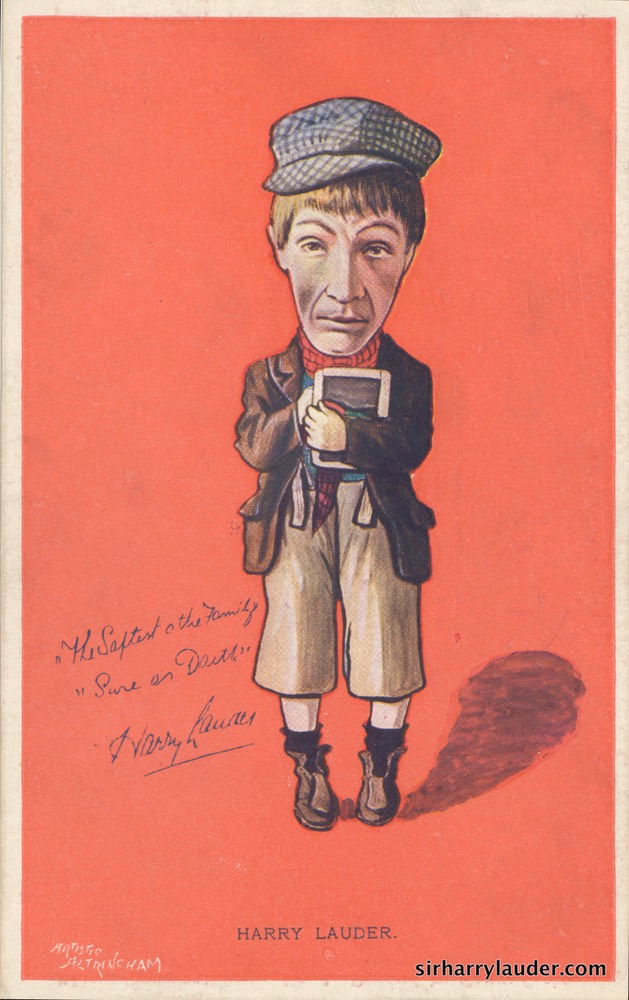 "The Saftest o the Family
"Sure as Death"
Harry Lauder
HARRY LAUDER.
ARTISTIC
ALTRINCHAM
sirharrylauder.com